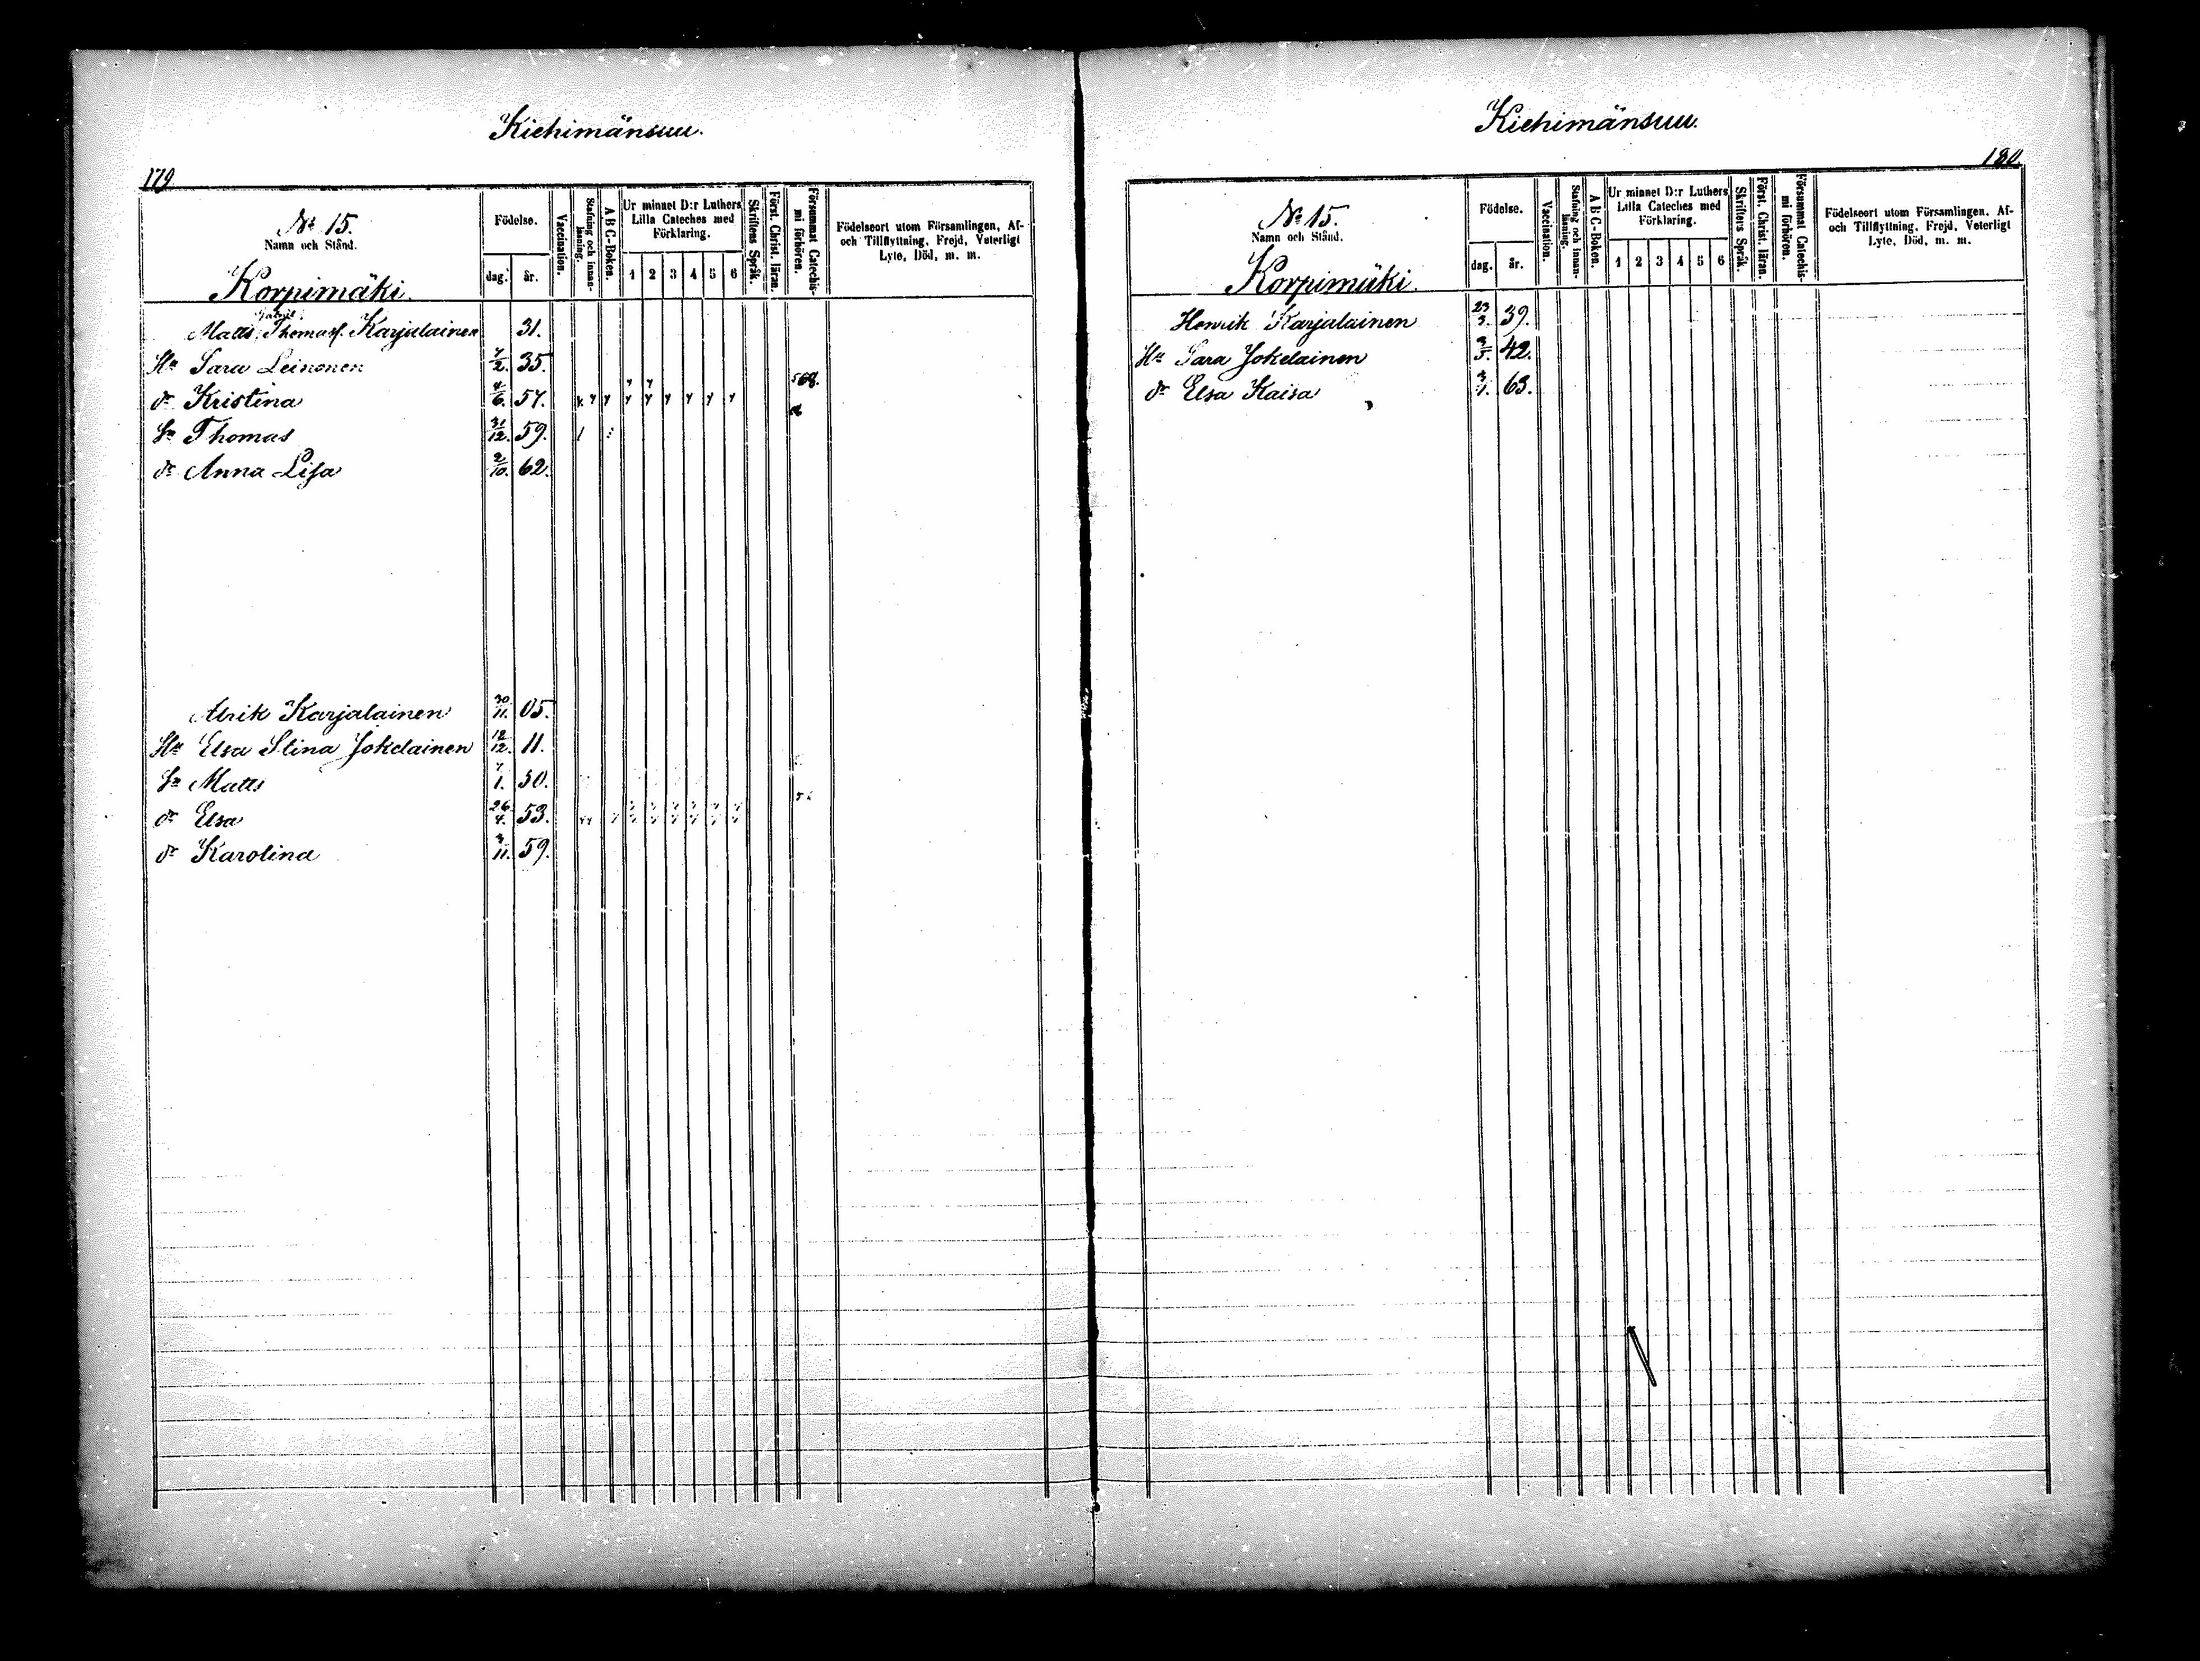 Kiehimänsuu.
179
№ 15.
Namn och Stånd.
Korpimäki.
Födelse.
dag. år.
Vaccination.
Stafning och innanläsning.
A B C-Boken.
Ur minnet D:r Luthers
Lilla Cateches med
Förklaring.
1 2 3 4 5 6
Skriftens Språk.
Först. Christ. läran.
Försummat Catechismi förhören.
Födelseort utom Församlingen, Af-
och Tillflyttning, Frejd, Veterligt
Lyte, Död, m. m.
Matts Thomass. Karjalainen 31.
Hu Sara Leinonen 7/2. 35.
dr Kristina 4/6. 57.
Sn Thomas 31/12. 59.
dr Anna Lisa 2/10. 62.
Alrik Karjalainen 30/11. 05.
Hu Elsa Stina Jokelainen 12/12. 11.
Sn Matts 7/1. 50.
dr Elsa 26/4. 53.
dr Karolina 3/11. 59.
Kiehimänsuu.
180
№ 15.
Namn och Stånd.
Korpimäki.
Födelse.
dag. år.
Vaccination.
Stafning och innanläsning.
A B C-Boken.
Ur minnet D:r Luthers
Lilla Cateches med
Förklaring.
1 2 3 4 5 6
Skriftens Språk.
Först. Christ. läran.
Försummat Catechismi förhören.
Födelseort utom Församlingen, Af-
och Tillflyttning, Frejd, Veterligt
Lyte, Död, m. m.
Henrik Karjalainen 23/3. 39.
Hu Sara Jokelainen 42.
dr Elsa Kaisa 63.